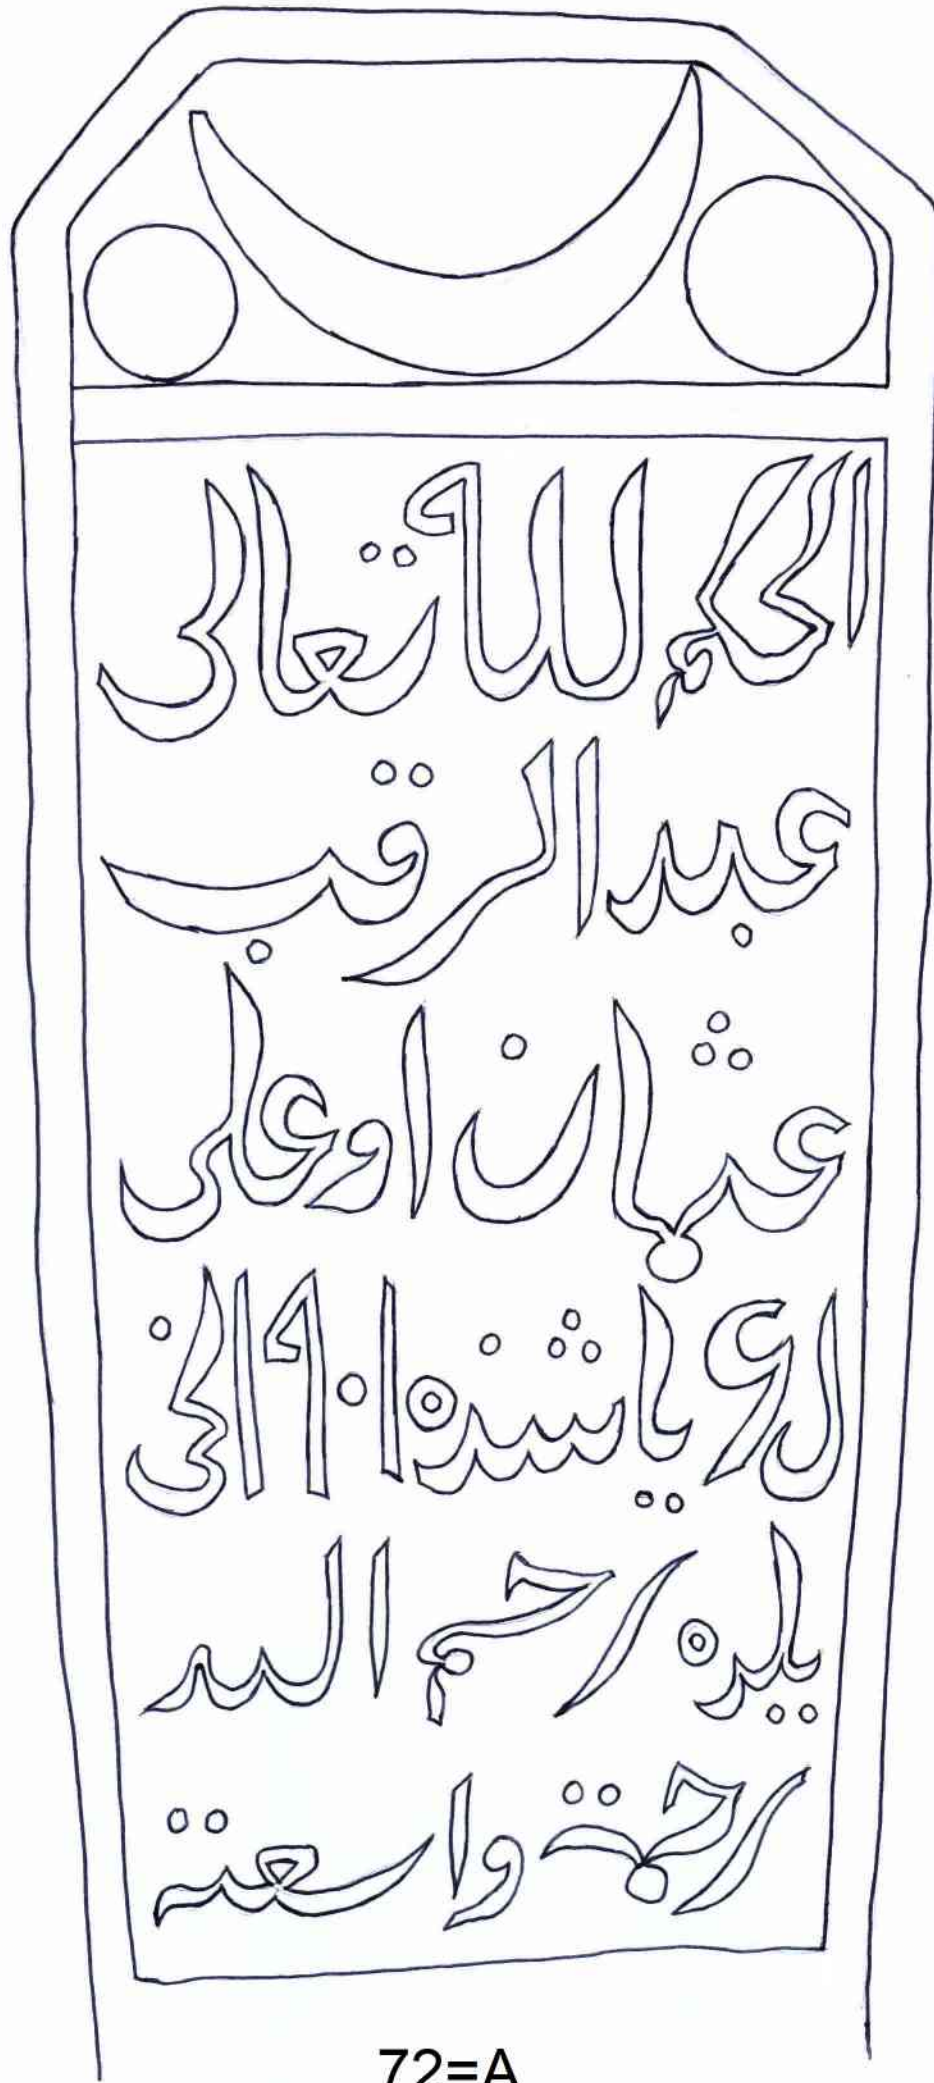 الحكم لله تعالى
عبد الرقب
عثمان اوعلى
ياشنده ١٩٠١ نجى
يلده رحم الله
رحمة واسعة
72=A